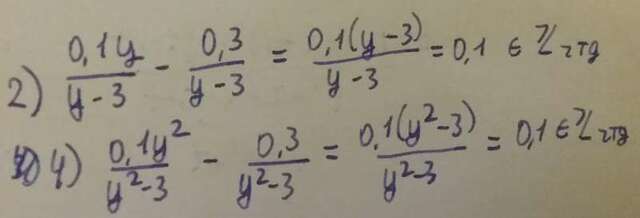 2) 0,1y/(y-3) - 0,3/(y-3) = 0,1(y-3)/(y-3) = 0,1 ∈ ℤ чтд
4) 0,1y²/(y²-3) - 0,3/(y²-3) = 0,1(y²-3)/(y²-3) = 0,1 ∈ ℤ чтд